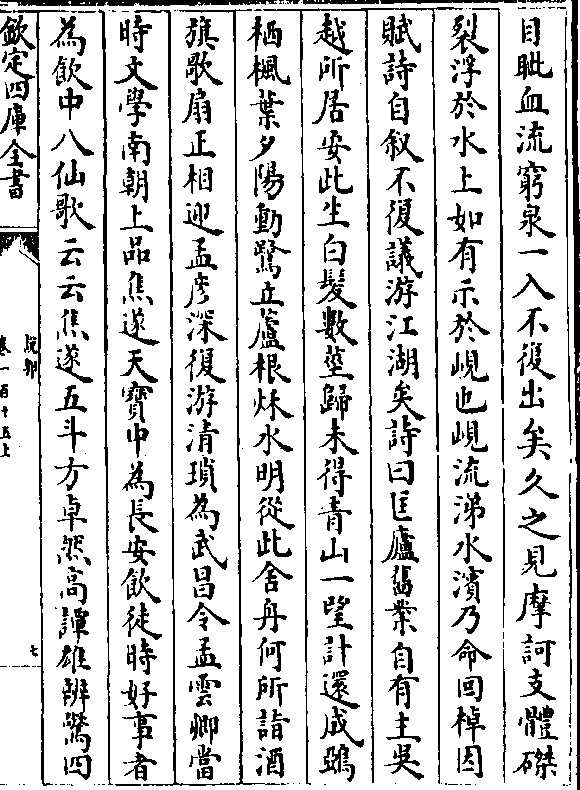 目眦血流窮泉一入不復出矣久之見摩訶支體磔
裂浮於水上如有示於峴也峴流涕水濱乃命回棹因
賦詩自叙不復議游江湖矣詩曰匡廬舊業自有主吳
越所居安此生白髮數莖歸未得青山一望計還成鵶
栖楓葉夕陽動鷺立蘆根秋水明從此舍舟何所詣酒
旗歌扇正相迎孟彦深復游清瑣為武昌令孟雲卿當
時文學南朝上品焦遂天寳中為長安飲徒時好事者
為飲中八仙歌云云焦遂五斗方卓然高譚雄辨驚四
欽定四庫全書
說郛
卷一百十五上
七